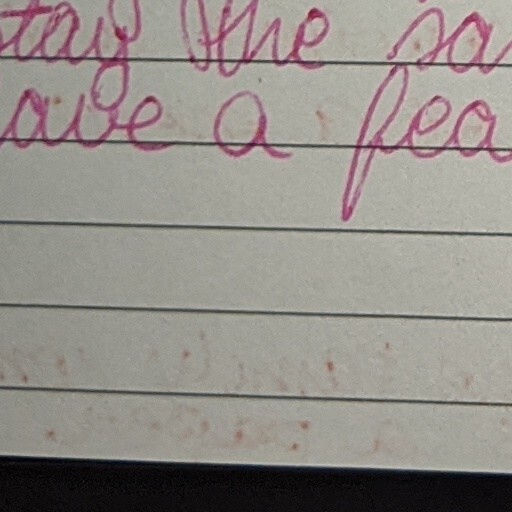 stay the sa
ave a pea